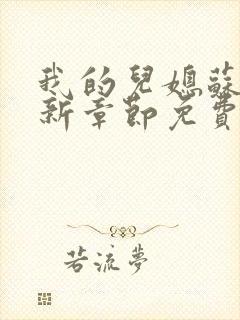 我的兒媳蘇
新章節免費
若流夢